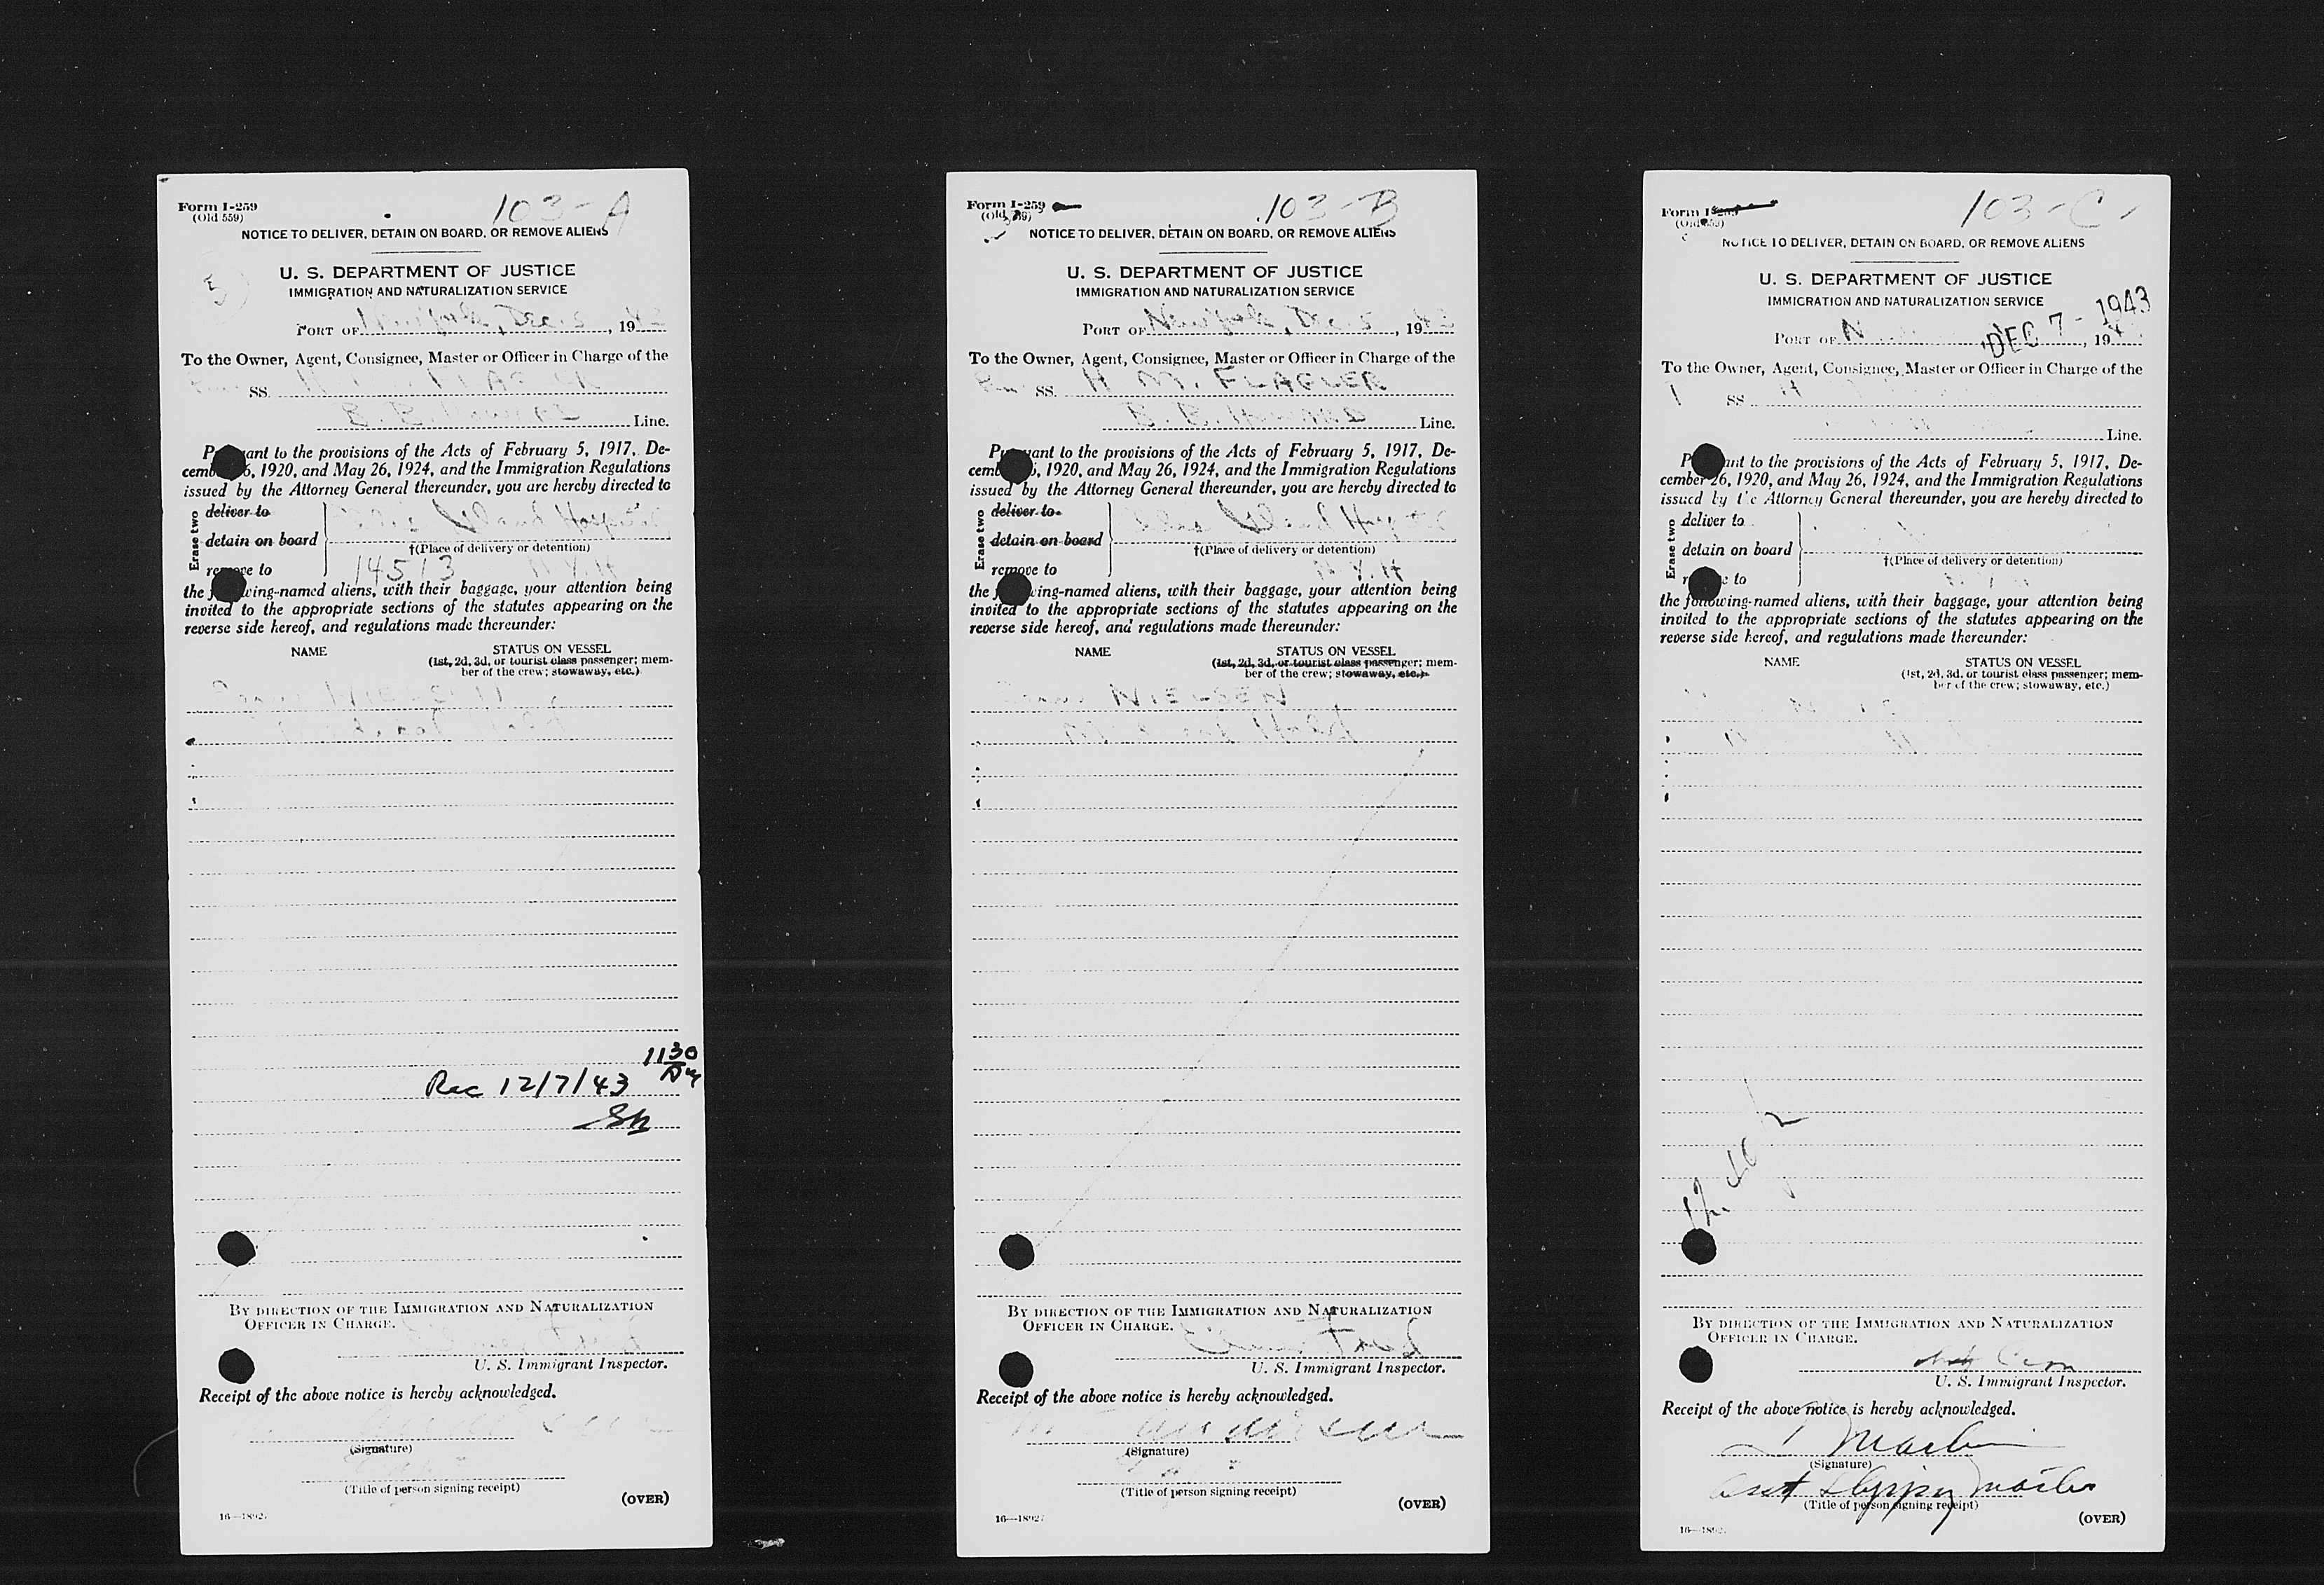 Form I-259
(Old 559)
103-A
NOTICE TO DELIVER, DETAIN ON BOARD, OR REMOVE ALIENS
U. S. DEPARTMENT OF JUSTICE
IMMIGRATION AND NATURALIZATION SERVICE
5
PORT OF New York, Dec. 19
To the Owner, Agent, Consignee, Master or Officer in Charge of the
SS.
Line.
Pursuant to the provisions of the Acts of February 5, 1917, De-
cember 26, 1920, and May 26, 1924, and the Immigration Regulations
issued by the Attorney General thereunder, you are hereby directed to
Erase two
deliver to
detain on board
†(Place of delivery or detention)
remove to
14513
the following-named aliens, with their baggage, your attention being
invited to the appropriate sections of the statutes appearing on the
reverse side hereof, and regulations made thereunder:
NAME
STATUS ON VESSEL
(1st, 2d, 3d, or tourist class passenger; mem-
ber of the crew; stowaway, etc.)
1130
AM
Rec 12/7/43
BY DIRECTION OF THE IMMIGRATION AND NATURALIZATION
OFFICER IN CHARGE.
U. S. Immigrant Inspector.
Receipt of the above notice is hereby acknowledged.
(Signature)
(Title of person signing receipt)
(OVER)
16—18927
Form I-259
(Old 559)
103-B
NOTICE TO DELIVER, DETAIN ON BOARD, OR REMOVE ALIENS
U. S. DEPARTMENT OF JUSTICE
IMMIGRATION AND NATURALIZATION SERVICE
PORT OF New York, Dec. 19
To the Owner, Agent, Consignee, Master or Officer in Charge of the
SS. H. M. FLAGLER
Line.
Pursuant to the provisions of the Acts of February 5, 1917, De-
cember 26, 1920, and May 26, 1924, and the Immigration Regulations
issued by the Attorney General thereunder, you are hereby directed to
Erase two
deliver to
detain on board
†(Place of delivery or detention)
remove to
N.Y.H
the following-named aliens, with their baggage, your attention being
invited to the appropriate sections of the statutes appearing on the
reverse side hereof, and regulations made thereunder:
NAME
STATUS ON VESSEL
(1st, 2d, 3d, or tourist class passenger; mem-
ber of the crew; stowaway, etc.)
NIELSEN
BY DIRECTION OF THE IMMIGRATION AND NATURALIZATION
OFFICER IN CHARGE.
U. S. Immigrant Inspector.
Receipt of the above notice is hereby acknowledged.
(Signature)
(Title of person signing receipt)
(OVER)
16—18927
Form I-259
(Old 559)
103-C
NOTICE TO DELIVER, DETAIN ON BOARD, OR REMOVE ALIENS
U. S. DEPARTMENT OF JUSTICE
IMMIGRATION AND NATURALIZATION SERVICE
DEC 7 - 1943
PORT OF N , 19
To the Owner, Agent, Consignee, Master or Officer in Charge of the
SS H
Line.
Pursuant to the provisions of the Acts of February 5, 1917, De-
cember 26, 1920, and May 26, 1924, and the Immigration Regulations
issued by the Attorney General thereunder, you are hereby directed to
Erase two
deliver to
detain on board
†(Place of delivery or detention)
remove to
the following-named aliens, with their baggage, your attention being
invited to the appropriate sections of the statutes appearing on the
reverse side hereof, and regulations made thereunder:
NAME
STATUS ON VESSEL
(1st, 2d, 3d, or tourist class passenger; mem-
ber of the crew; stowaway, etc.)
BY DIRECTION OF THE IMMIGRATION AND NATURALIZATION
OFFICER IN CHARGE.
U. S. Immigrant Inspector.
Receipt of the above notice is hereby acknowledged.
(Signature)
master
(Title of person signing receipt)
(OVER)
16—18927